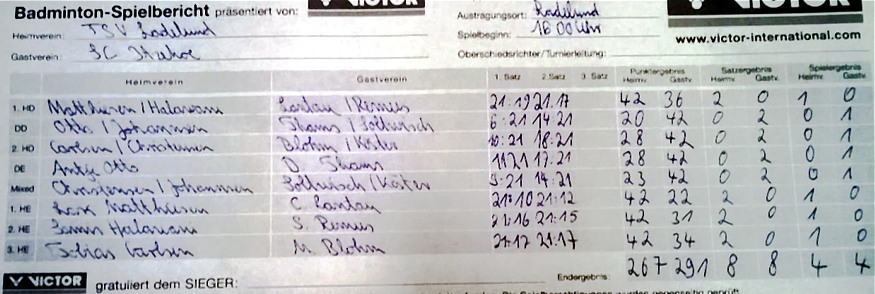 Badminton-Spielbericht präsentiert von: VICTOR
Heimverein: TSV Ladelund Austragungsort: Ladelund
Gastverein: SC Spielbeginn: 18 00 Uhr www.victor-international.com
Oberschiedsrichter/Turnierleitung:
Heimverein Gastverein 1. Satz 2. Satz 3. Satz Punktergebnis Heimv. Gastv. Satzergebnis Heimv. Gastv. Spielergebnis Heimv. Gastv.
1. HD Matthiesen / / Remus 21:19 21:17 42 36 2 0 1 0
DD Otto / Johannsen Thoms / 6:21 14:21 20 42 0 2 0 1
2. HD Carlsen / Christensen Blohm / Köster 10:21 18:21 28 42 0 2 0 1
DE Antje Otto D. Thoms 11:21 17:21 28 42 0 2 0 1
Mixed Christensen / Johannsen 9:21 14:21 23 42 0 2 0 1
1. HE Matthiesen C. 21:10 21:12 42 22 2 0 1 0
2. HE S. Remus 21:16 21:15 42 31 2 0 1 0
3. HE Tobias Carlsen M. Blohm 21:17 21:17 42 34 2 0 1 0
Endergebnis: 267 291 8 8 4 4
VICTOR gratuliert dem SIEGER: